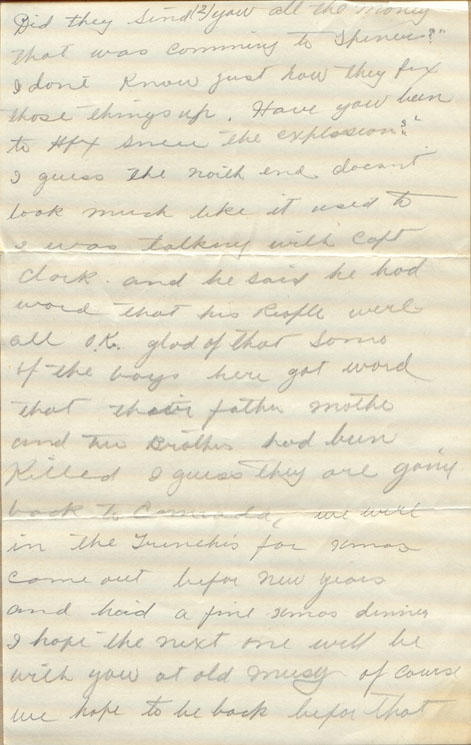 Did they send (2) you all the money
that was comming to Spencer?"
I dont Know just how they fix
those things up. Have you been
to Hfx since the explosion?"
I guess the north end doesnt
look much like it used to
I was talking with Capt
Clark. and he said he had
word that his People were
all O.K. glad of that Some
of the boys here got word
that their father mothe
and two Brothers had been
Killed I guess they are going
back to Cannada, we were
in the Trenchis for xmas
come out befor New years
and had a fine xmas dinner
I hope the next one will be
with you at old Musq of course
we hope to be back befor that